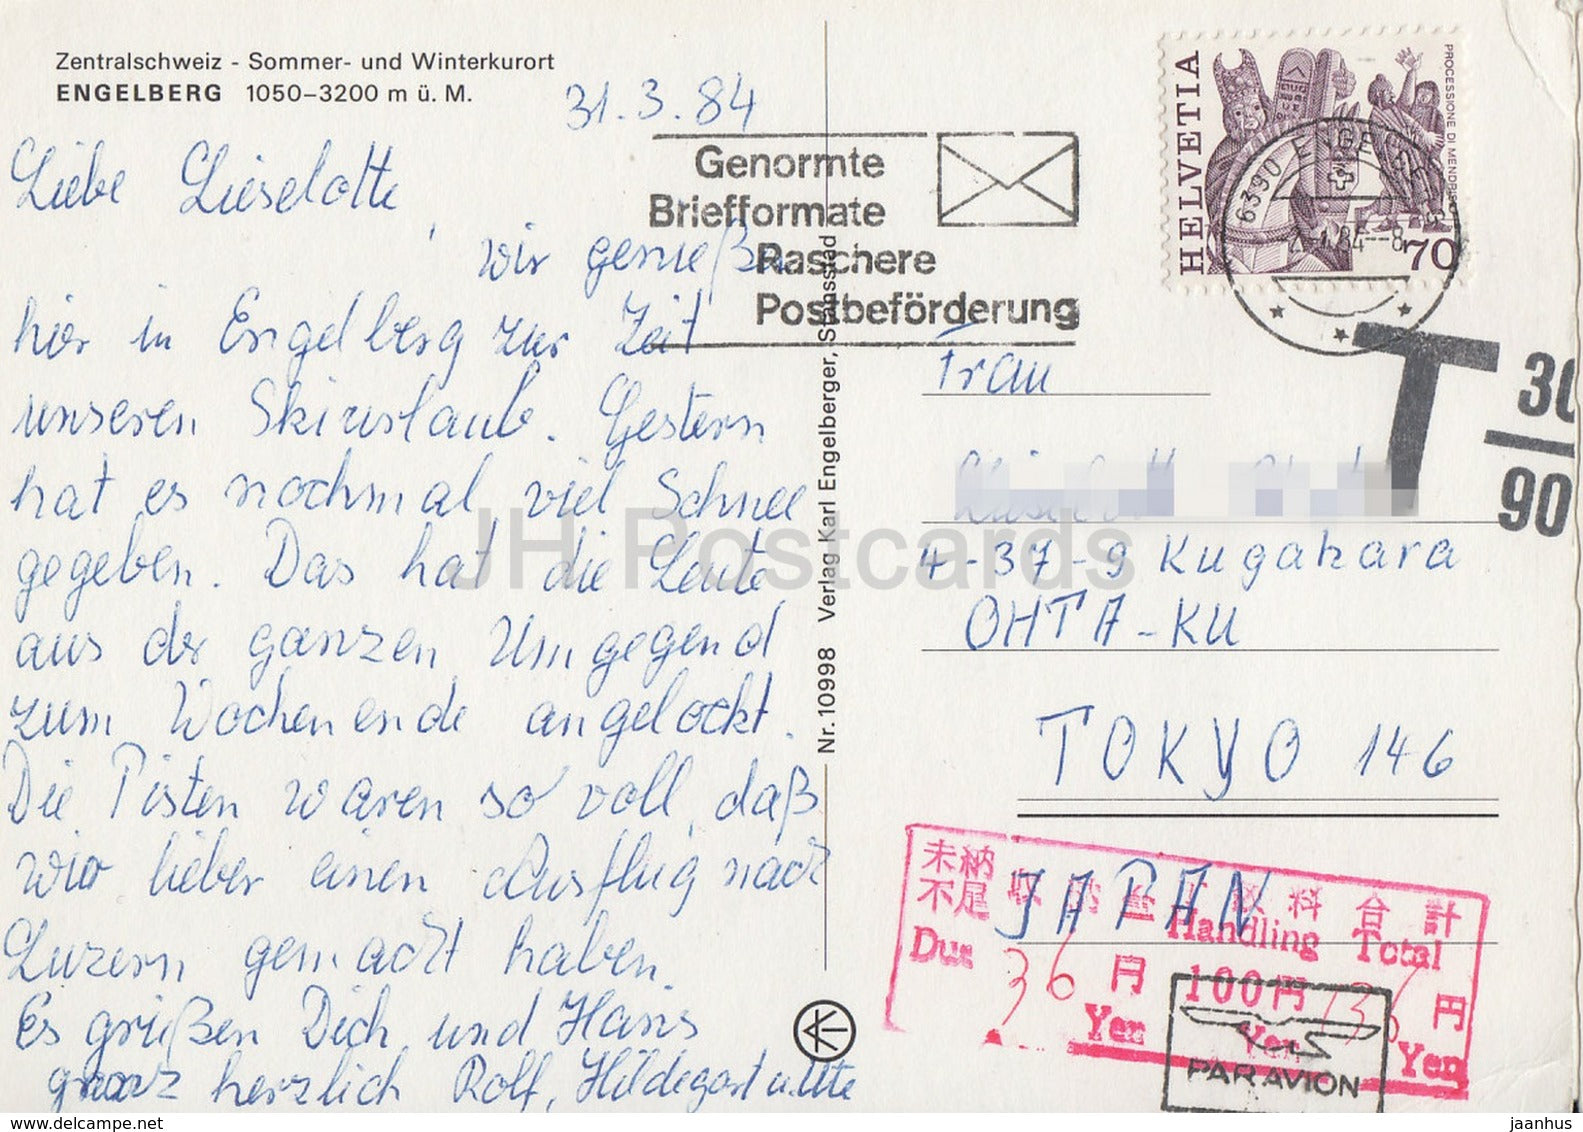 Zentralschweiz - Sommer- und Winterkurort
ENGELBERG 1050–3200 m ü. M.
31.3.84
Liebe Lieselotte,
wir genießen
hier in Engelberg zur Zeit
unseren Skiurlaub. Gestern
hat es nochmal viel Schnee
gegeben. Das hat die Leute
aus der ganzen Umgegend
zum Wochenende angelockt.
Die Pisten waren so voll, daß
wir lieber einen Ausflug nach
Luzern gemacht haben.
Es grüßen Dich und Hans
ganz herzlich Rolf, Hildegart u. Ute
Genormte
Briefformate
Raschere
Postbeförderung
Nr. 10998 Verlag Karl Engelberger, Stansstad
HELVETIA
PROCESSIONE DI MENDRISIO
70
6390 ENGELBERG
84--8
T 30
90
Frau
4-37-9 Kugahara
OHTA-KU
TOKYO 146
JAPAN
未納 料 合計
不足
Due Handling Total
36 円 100円 136 円
Yen Yen Yen
PAR AVION
JH Postcards
www.delcampe.net
jaanhus